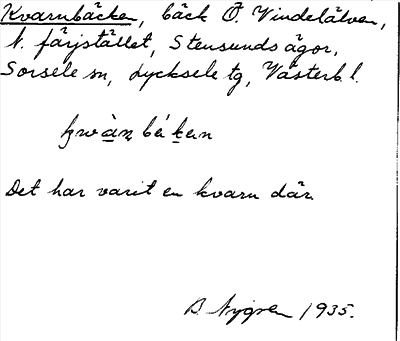 Kvarnbäcken, bäck Ö. Vindelälven,
N. färjstället, Stensunds ägor,
Sorsele sn, Lycksele tg, Västerb. l.
Det har varit en kvarn där.
B. Nygren 1935.